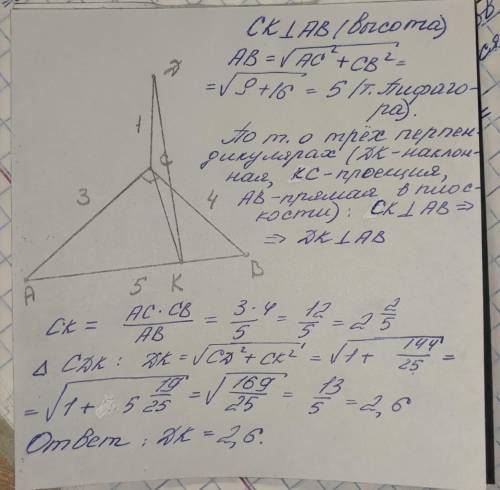 CK⊥AB (высота)
AB = √AC² + CB² =
= √9+16 = 5 (т. Пифаго-
ра).
По т. о трёх перпен-
дикулярах (DK-наклон-
ная, KC-проекция,
AB-прямая в плос-
кости): CK⊥AB ⇒
⇒ DK⊥AB
D
1
C
3
4
A
5
K
B
CK = AC·CB/AB = 3·4/5 = 12/5 = 2 2/5
△ CDK: DK = √CD² + CK² = √1 + 144/25 =
= √1 + 5 19/25 = √169/25 = 13/5 = 2,6
Ответ: DK = 2,6.